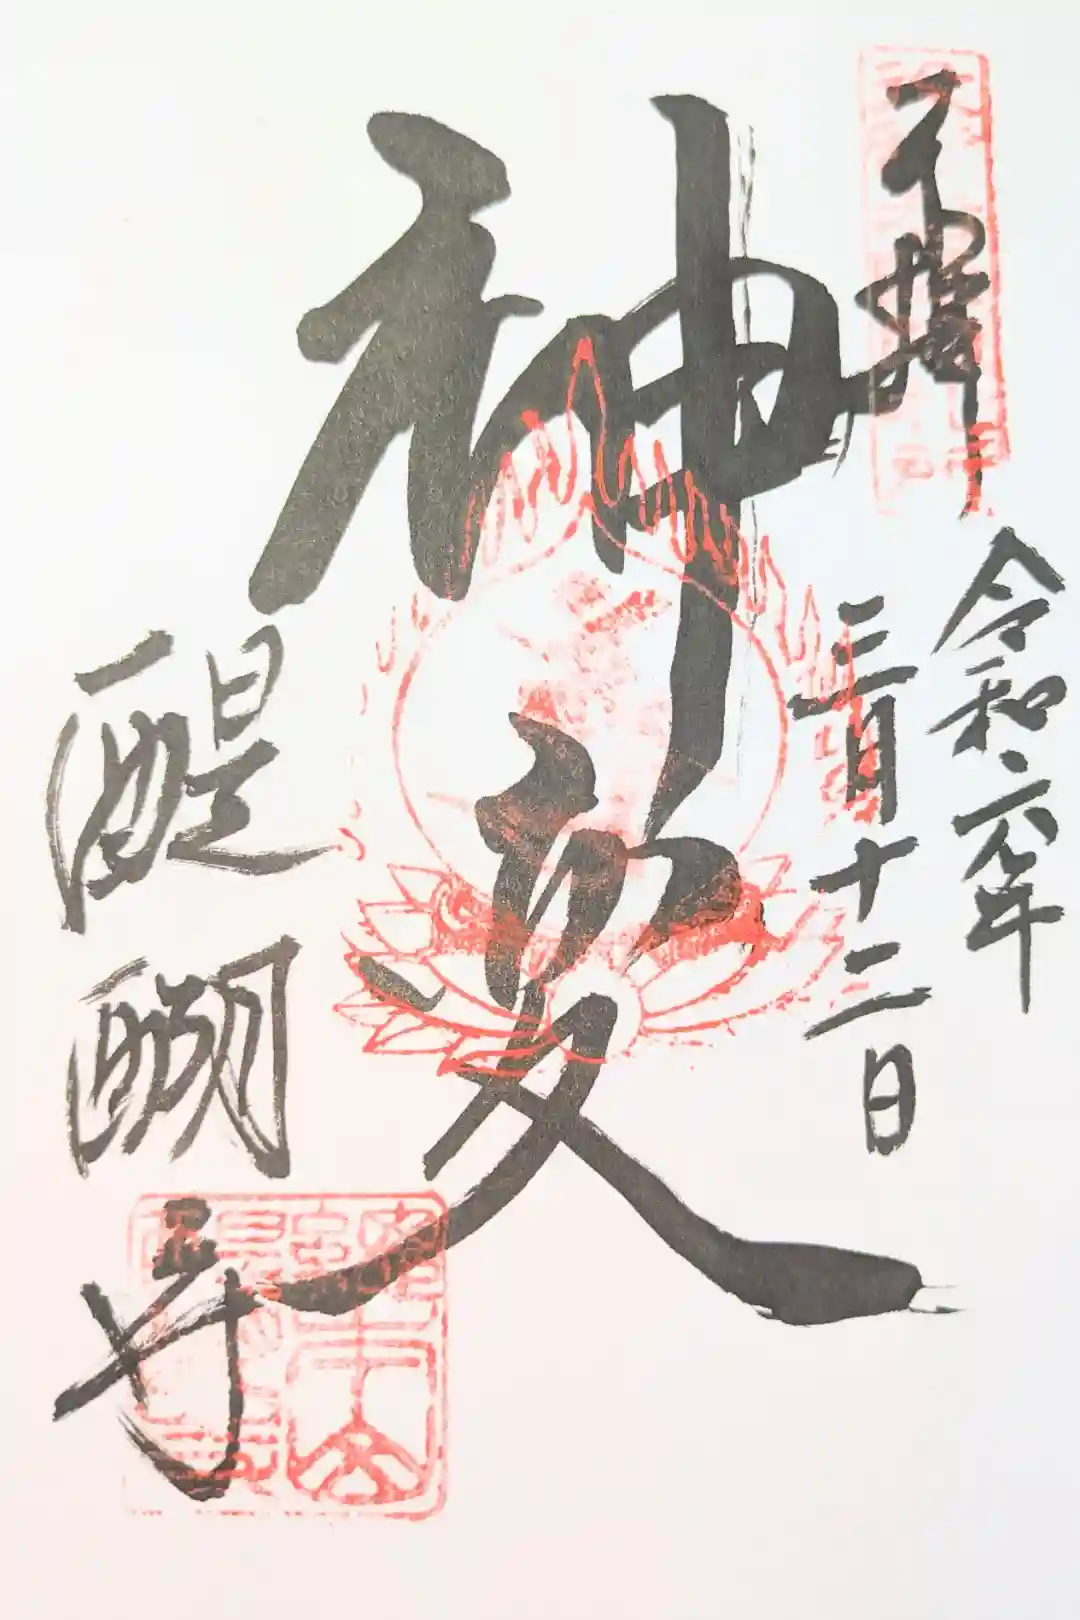 奉拝
令和六年
三月十二日
神変
醍醐寺